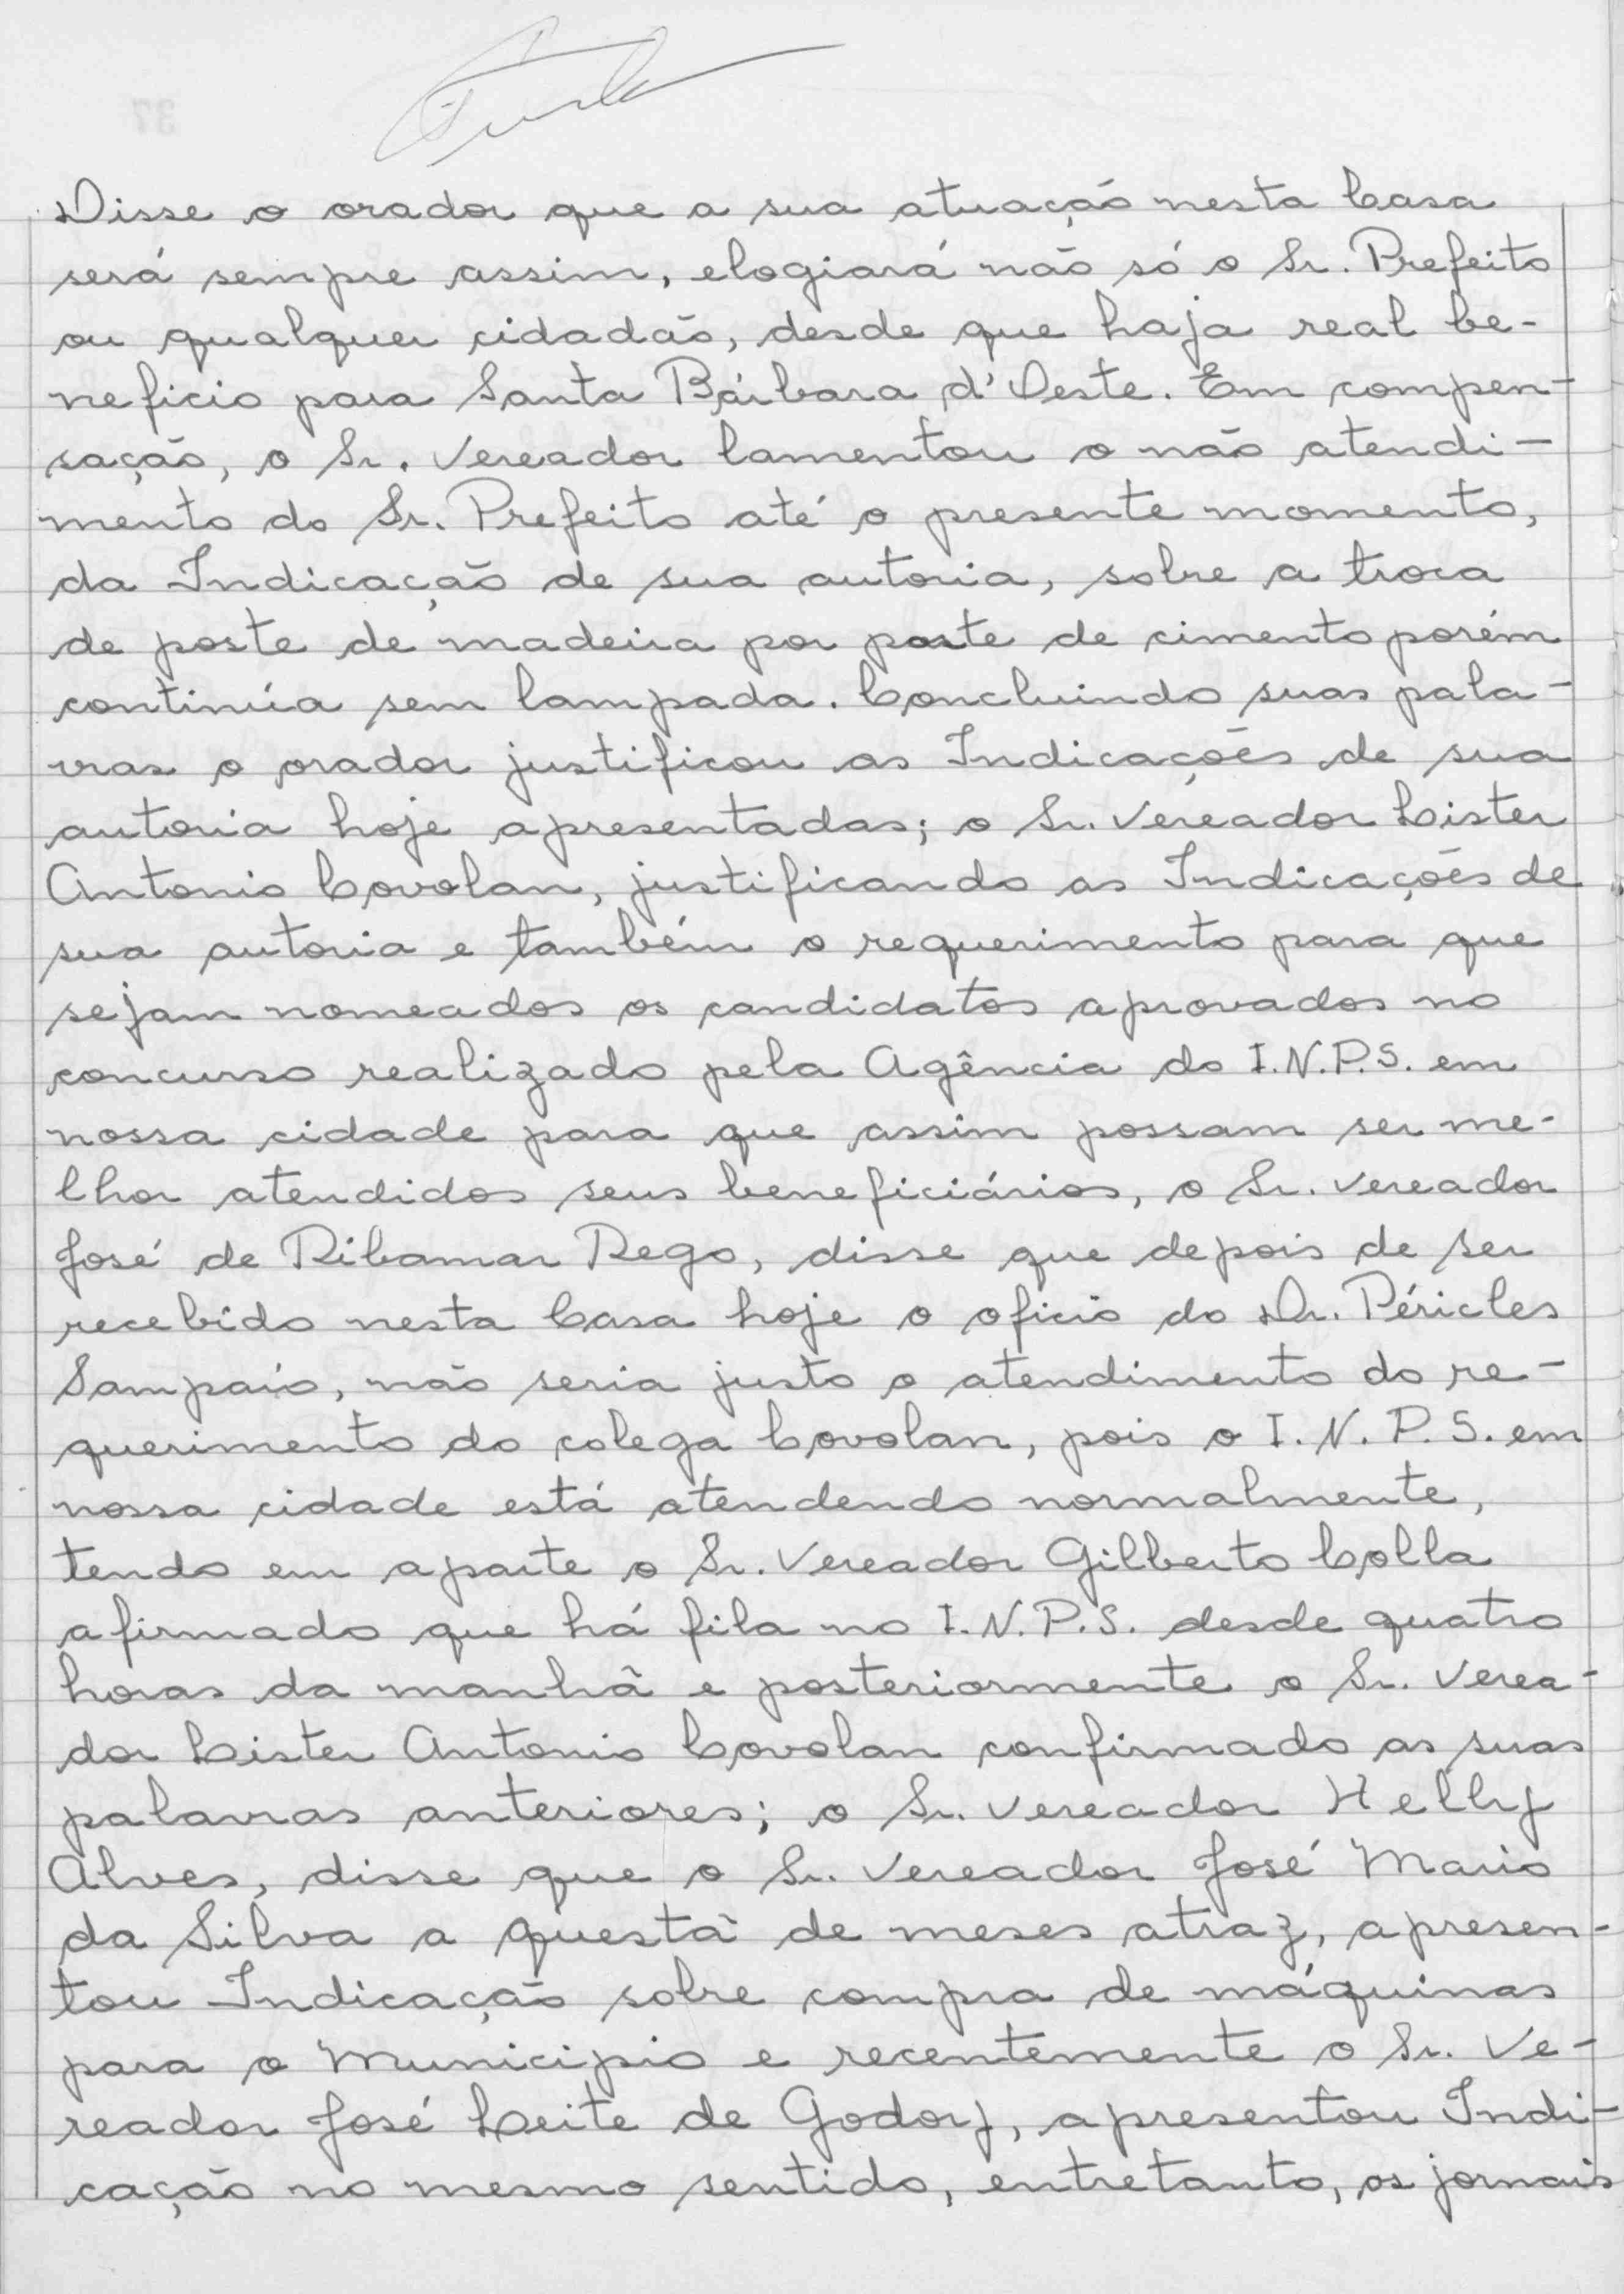 Disse o orador que a sua atuação nesta Casa
será sempre assim, elogiará não só o Sr. Prefeito
ou qualquer cidadão, desde que haja real be-
neficio para Santa Bárbara d'Oeste. Em compen-
sação, o Sr. Vereador lamentou o não atendi-
mento do Sr. Prefeito até o presente momento,
da Indicação de sua autoria, sobre a troca
de poste de madeira por poste de cimento porém
continúa sem lampada. Concluindo suas pala-
vras o orador justificou as Indicações de sua
autoria hoje apresentadas; o Sr. Vereador Lister
Antonio Covolan, justificando as Indicações de
sua autoria e também o requerimento para que
sejam nomeados os candidatos aprovados no
concurso realizado pela Agência do I.N.P.S. em
nossa cidade para que assim possam ser me-
lhor atendidos seus beneficiários, o Sr. Vereador
José de Ribamar Rego, disse que depois de ser
recebido nesta Casa hoje o oficio do Dr. Péricles
Sampaio, não seria justo o atendimento do re-
querimento do colega Covolan, pois o I.N.P.S. em
nossa cidade está atendendo normalmente,
tendo em aparte o Sr. Vereador Gilberto Colla
afirmado que há fila no I.N.P.S. desde quatro
horas da manhã e posteriormente o Sr. Verea-
dor Lister Antonio Covolan confirmado as suas
palavras anteriores; o Sr. Vereador Helly
Alves, disse que o Sr. Vereador José Mario
da Silva a questã de meses atraz, apresen-
tou Indicação sobre compra de máquinas
para o Municipio e recentemente o Sr. Ve-
reador José Leite de Godoy, apresentou Indi-
cação no mesmo sentido, entretanto, os jornais